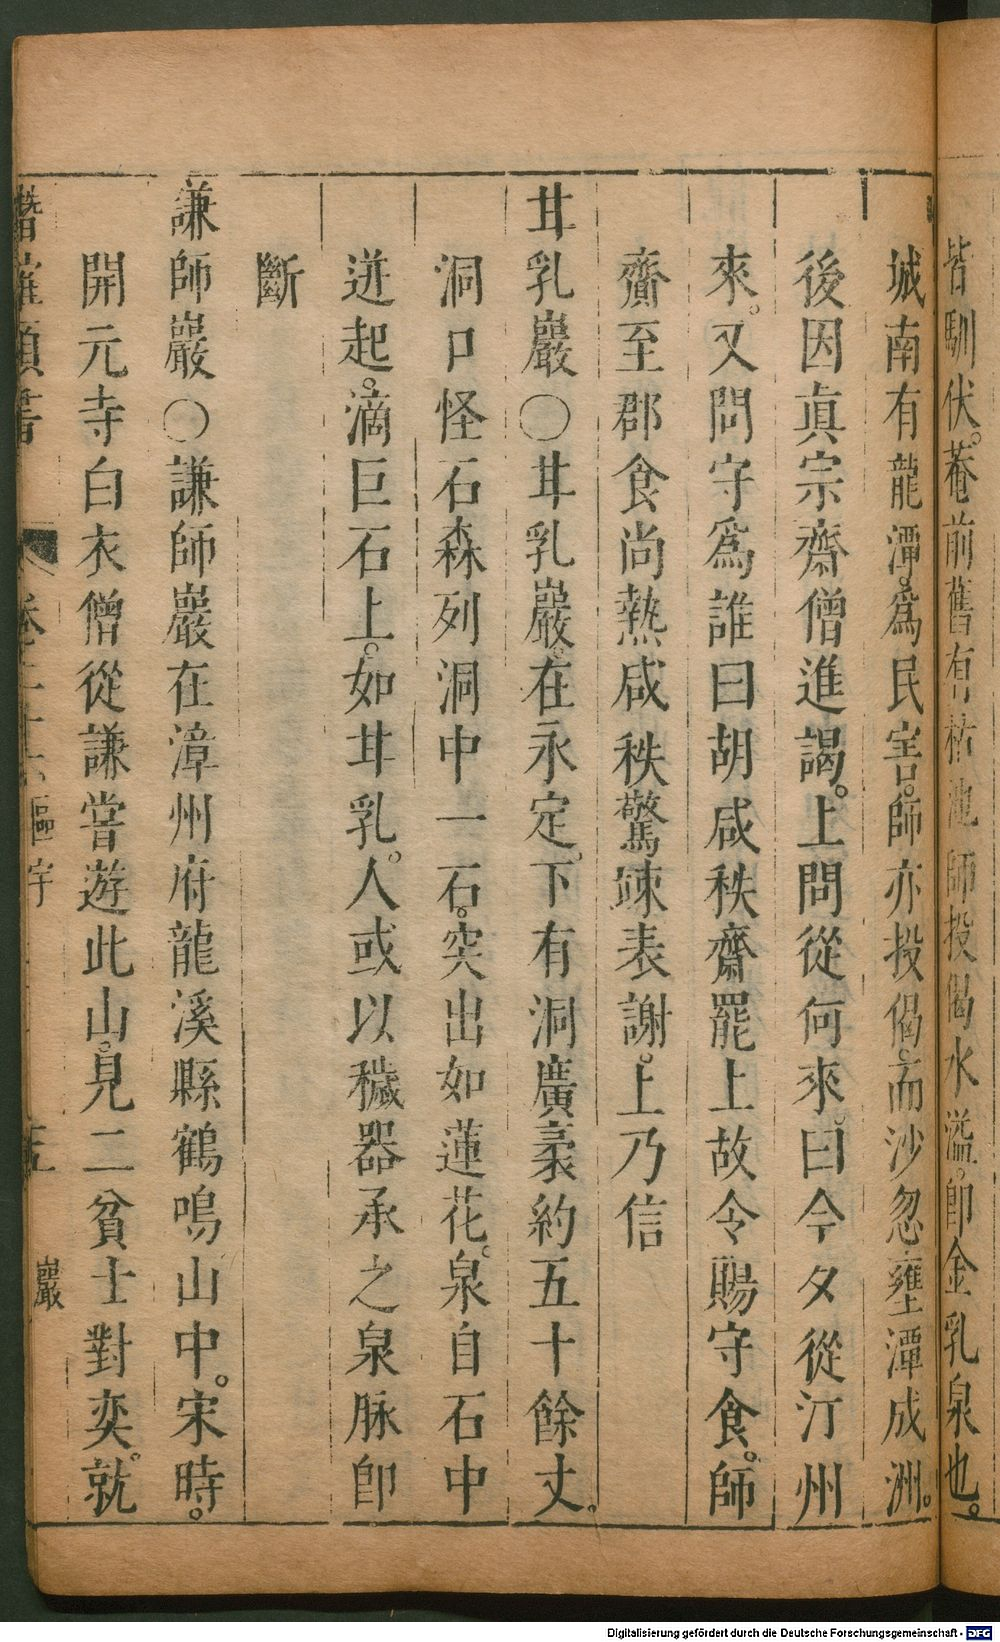 皆馴伏。菴前舊有枯池師投偈水溢。卽金乳泉也。
城南有龍潭。爲民害。師亦投偈。而沙忽壅潭成洲。
後因眞宗齋僧進謁。上問從何來。曰今夕從汀州
來。又問守爲誰曰胡咸秩齋罷上故令賜守食。師
齎至郡食尚熱咸秩驚竦表謝。上乃信
甘乳巖○甘乳巖。在永定。下有洞廣袤約五十餘丈。
洞口怪石森列洞中一石。突出如蓮花。泉自石中
迸起。滴巨石上。如甘乳。人或以穢器承之泉脉卽
斷
謙師巖○謙師巖在漳州府龍溪縣鶴鳴山中。宋時。
開元寺白衣僧從謙嘗遊此山。見二貧士對奕。就
潛確類書 卷二十六 區宇 巖
Digitalisierung gefördert durch die Deutsche Forschungsgemeinschaft - DFG